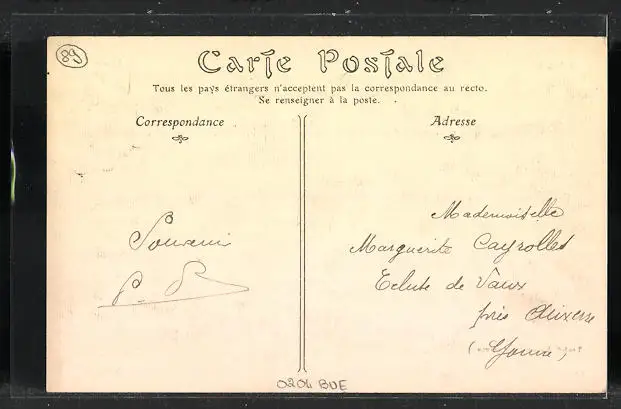 89
Carte Postale
Tous les pays étrangers n'acceptent pas la correspondance au recto.
Se renseigner à la poste.
Correspondance
Adresse
Souvenir
Mademoiselle
Marguerite Cayrolles
Ecluse de Vaux
près Auxerre
(Yonne)
0204 BUE